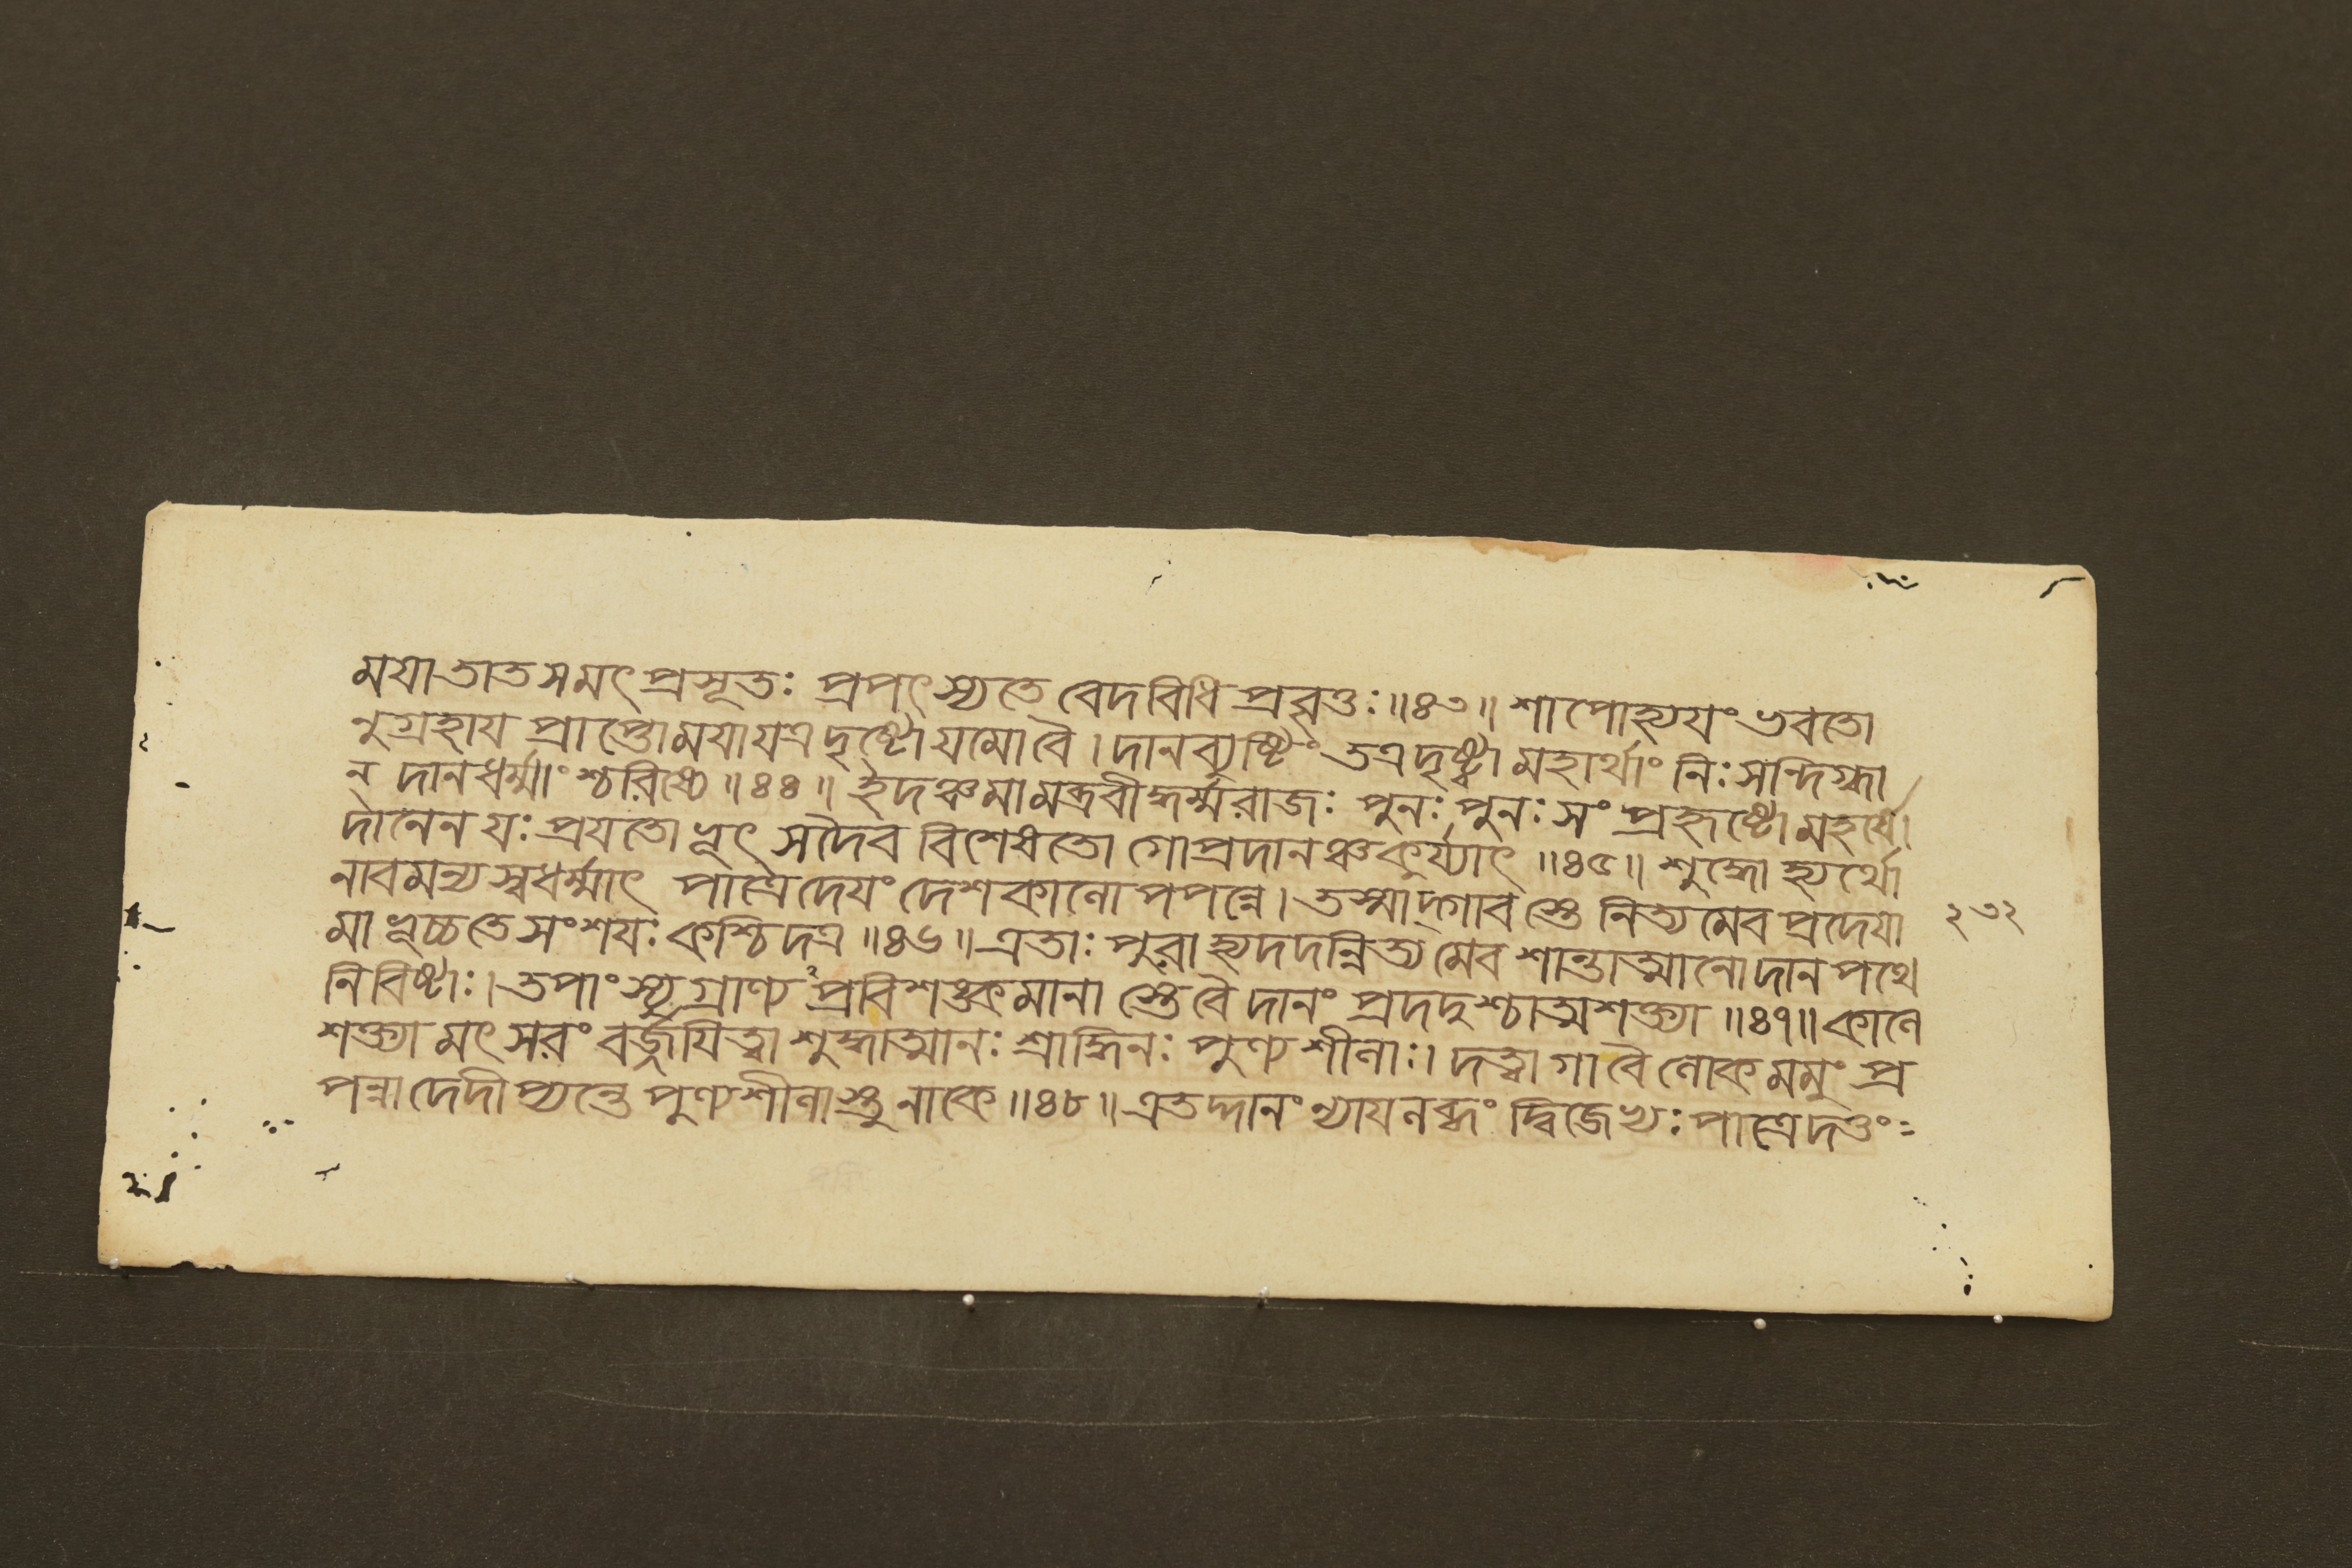 ময়াতাতসমৎপ্রসূতঃ প্রপৎস্যতে বেদবিধিপ্রবৃত্তঃ॥৪৩॥ শাপোহ্যয়ং ভবতো
নুগ্রহায় প্রাপ্তোময়াযত্রদৃষ্টোযমোবৈ। দানব্যুষ্টিং তত্রদৃষ্ট্বামহার্থাং নিঃসন্দিগ্ধা
ন্ দানধর্ম্মাংশ্চরিষ্যে॥৪৪॥ ইদঞ্চমামব্রবীদ্ধর্ম্মরাজঃ পুনঃপুনঃসংপ্রহৃষ্টোমহর্ষে।
দানেনযঃ প্রযতোভূৎ সদৈব বিশেষতো গোপ্রদানঞ্চকুর্য্যাৎ॥৪৫॥ শুদ্ধোহ্যর্থো
নাবমন্যস্বধর্ম্মাৎ পাত্রেদেয়ং দেশকালোপপন্নে। তস্মাদ্গাবস্তে নিত্যমেবপ্রদেয়া ২৩২
মাভূচ্চতেসংশয়ঃ কশ্চিদত্র॥৪৬॥ এতাঃ পুরাহ্যদদন্নিত্যমেব শান্তাত্মানোদানপথে
নিবিষ্টাঃ। তপাংস্যুগ্রাণ্যপ্রবিশঙ্কমানা স্তেবৈদানং প্রদদুশ্চাত্মশক্ত্যা॥৪৭॥ কালে
শক্ত্যামৎসরং বর্জ্জয়িত্বা শুদ্ধাত্মানঃ শ্রাদ্ধিনঃ পুণ্যশীলাঃ। দত্ত্বাগাবৈলোকমমুং প্র
পন্নাদেদীপ্যন্তে পুণ্যশীলাস্তুনাকে॥৪৮॥ এতদ্দানং ন্যায়লব্ধং দ্বিজেভ্যঃ পাত্রেদত্তং